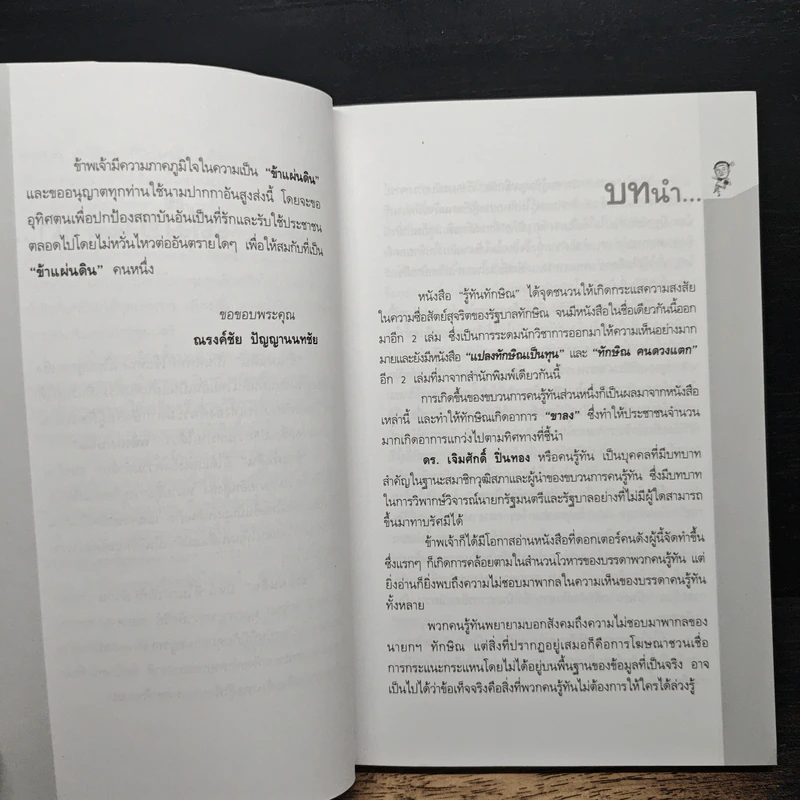 ข้าพเจ้ามีความภาคภูมิใจในความเป็น "ข้าแผ่นดิน"
และขออนุญาตทุกท่านใช้นามปากกาอันสูงส่งนี้ โดยจะขอ
อุทิศตนเพื่อปกป้องสถาบันอันเป็นที่รักและรับใช้ประชาชน
ตลอดไปโดยไม่หวั่นไหวต่ออันตรายใดๆ เพื่อให้สมกับที่เป็น
"ข้าแผ่นดิน" คนหนึ่ง
ขอขอบพระคุณ
ณรงค์ชัย ปัญญานนทชัย
บทนำ...
หนังสือ "รู้ทันทักษิณ" ได้จุดชนวนให้เกิดกระแสความสงสัย
ในความซื่อสัตย์สุจริตของรัฐบาลทักษิณ จนมีหนังสือในชื่อเดียวกันนี้ออก
มาอีก 2 เล่ม ซึ่งเป็นการระดมนักวิชาการออกมาให้ความเห็นอย่างมาก
มายและยังมีหนังสือ "แปลงทักษิณเป็นทุน" และ "ทักษิณ คนดวงแตก"
อีก 2 เล่มที่มาจากสำนักพิมพ์เดียวกันนี้
การเกิดขึ้นของขบวนการคนรู้ทันส่วนหนึ่งก็เป็นผลมาจากหนังสือ
เหล่านี้ และทำให้ทักษิณเกิดอาการ "ขาลง" ซึ่งทำให้ประชาชนจำนวน
มากเกิดอาการแกว่งไปตามทิศทางที่ชี้นำ
ดร. เจิมศักดิ์ ปิ่นทอง หรือคนรู้ทัน เป็นบุคคลที่มีบทบาท
สำคัญในฐานะสมาชิกวุฒิสภาและผู้นำของขบวนการคนรู้ทัน ซึ่งมีบทบาท
ในการวิพากษ์วิจารณ์นายกรัฐมนตรีและรัฐบาลอย่างที่ไม่มีผู้ใดสามารถ
ขึ้นมาทาบรัศมีได้
ข้าพเจ้าก็ได้มีโอกาสอ่านหนังสือที่ดอกเตอร์คนดังผู้นี้จัดทำขึ้น
ซึ่งแรกๆ ก็เกิดการคล้อยตามในสำนวนโวหารของบรรดาพวกคนรู้ทัน แต่
ยิ่งอ่านก็ยิ่งพบถึงความไม่ชอบมาพากลในความเห็นของบรรดาคนรู้ทัน
ทั้งหลาย
พวกคนรู้ทันพยายามบอกสังคมถึงความไม่ชอบมาพากลของ
นายกฯ ทักษิณ แต่สิ่งที่ปรากฏอยู่เสมอก็คือการโฆษณาชวนเชื่อ
การกระแนะกระแหนโดยไม่ได้อยู่บนพื้นฐานของข้อมูลที่เป็นจริง อาจ
เป็นไปได้ว่าข้อเท็จจริงคือสิ่งที่พวกคนรู้ทันไม่ต้องการให้ใครได้ล่วงรู้